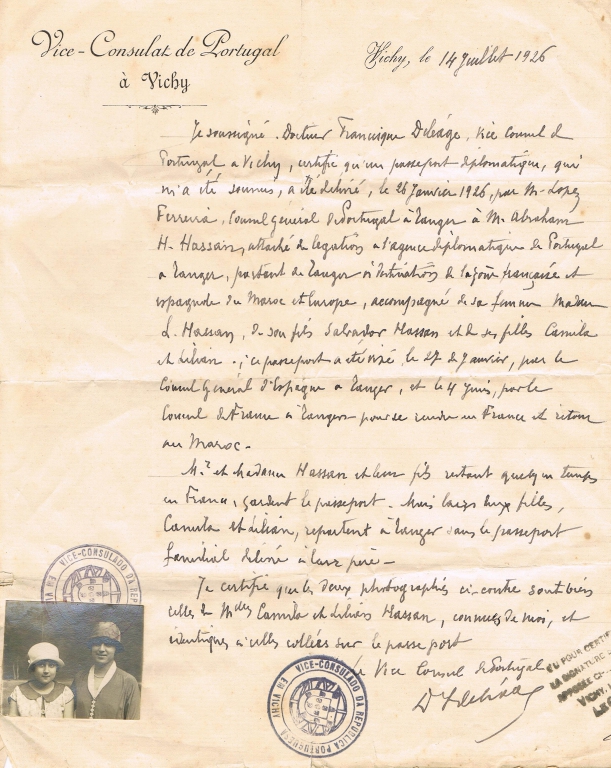 Vice-Consulat de Portugal
à Vichy
Vichy, le 14 Juillet 1926
Je soussigné. Docteur Francisque Déléage, Vice Consul de
Portugal à Vichy, certifie qu'un passeport diplomatique, qui
m'a été soumis, a été délivré, le 26 Janvier 1926, par M. Lopez
Ferreira, Consul général de Portugal à Tanger à M. Abraham
H. Hassan, attaché de légation à l'agence diplomatique de Portugal
à Tanger, partant de Tanger à destination de la zone française et
espagnole du Maroc et Europe, accompagné de sa femme Madame
L. Hassan, de son fils Salvador Hassan et de ses filles Camila
et Lilian. ce passeport a été visé le 27 de Janvier, par le
Consul Général d'Espagne à Tanger, et le 4 Juin, par le
Consul de France à Tanger pour se rendre en France et retour
au Maroc -
Mr et Madame Hassan et leur fils restant quelque temps
en France, gardent le passeport. Mais leurs deux filles,
Camila et Lilian, repartent à Tanger sans le passeport
familial délivré à leur père -
Je certifie que les deux photographies ci-contre sont bien
celles de Mlles Camila et Lilian Hassan, connues de moi, et
identiques à celles collées sur le passeport
Le Vice Consul de Portugal
VICE-CONSULADO DA REP
EM VI
VICE-CONSULADO DA REPUBLICA PORTUGUESA
EM VICHY
VU POUR CERTIF
LA SIGNATURE
APPOSÉE CI-
VICHY